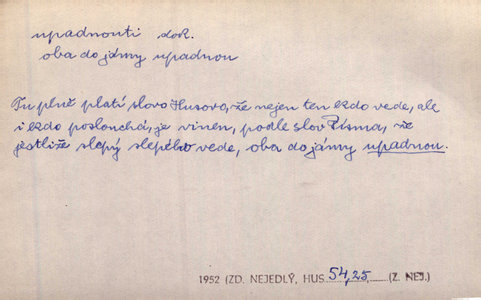 upadnouti dok.
oba do jámy upadnou
Tu plně platí slovo Husovo, že nejen ten kdo vede, ale
i kdo poslouchá, je vinen, podle slov Písma, že
jestliže slepý slepého vede, oba do jámy upadnou.
1952 (ZD. NEJEDLÝ, HUS 54,25, (Z. NEJ.)